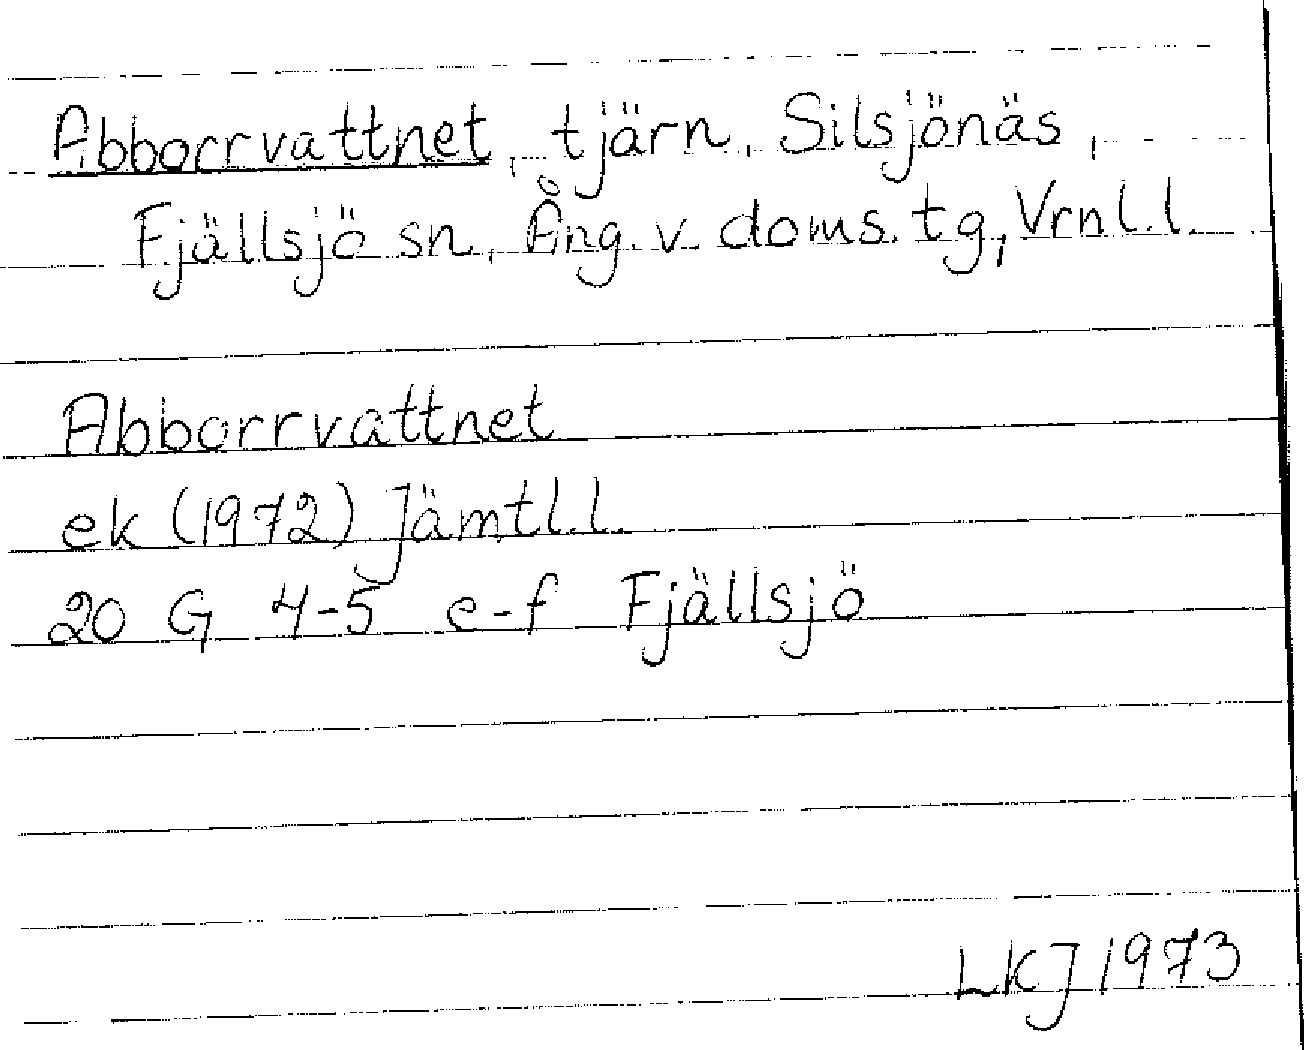 Abborrvattnet, tjärn, Silsjönäs,
Fjällsjö sn, Ång. v. doms. tg, Vrnl. l.
Abborrvattnet
ek (1972) Jämtl. l.
20 G 4-5 e-f Fjällsjö
LKJ 1973